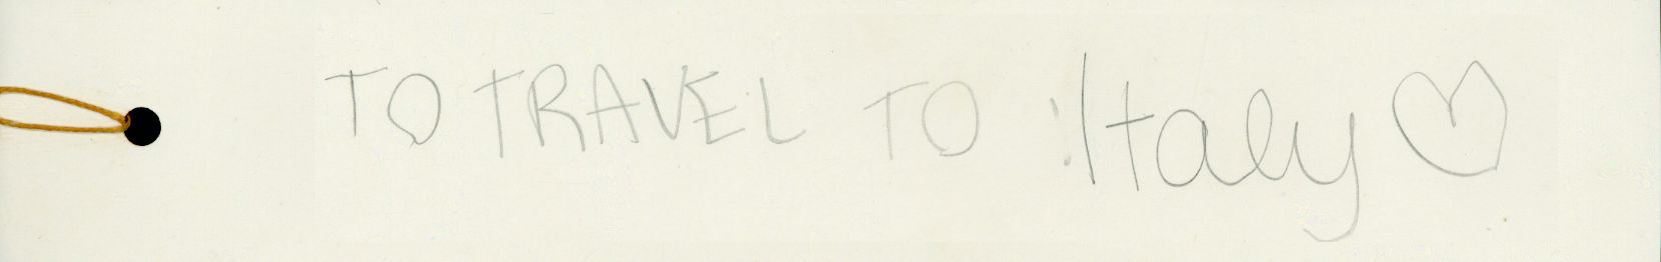 TO TRAVEL TO Italy ♡